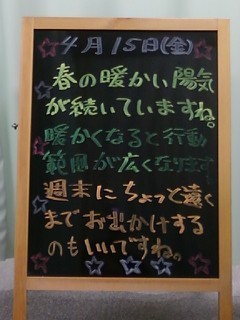 4月15日(金)
春の暖かい陽気
が続いていますね。
暖かくなると行動
範囲が広くなります
週末にちょっと遠く
までお出かけする
のもいいですね。